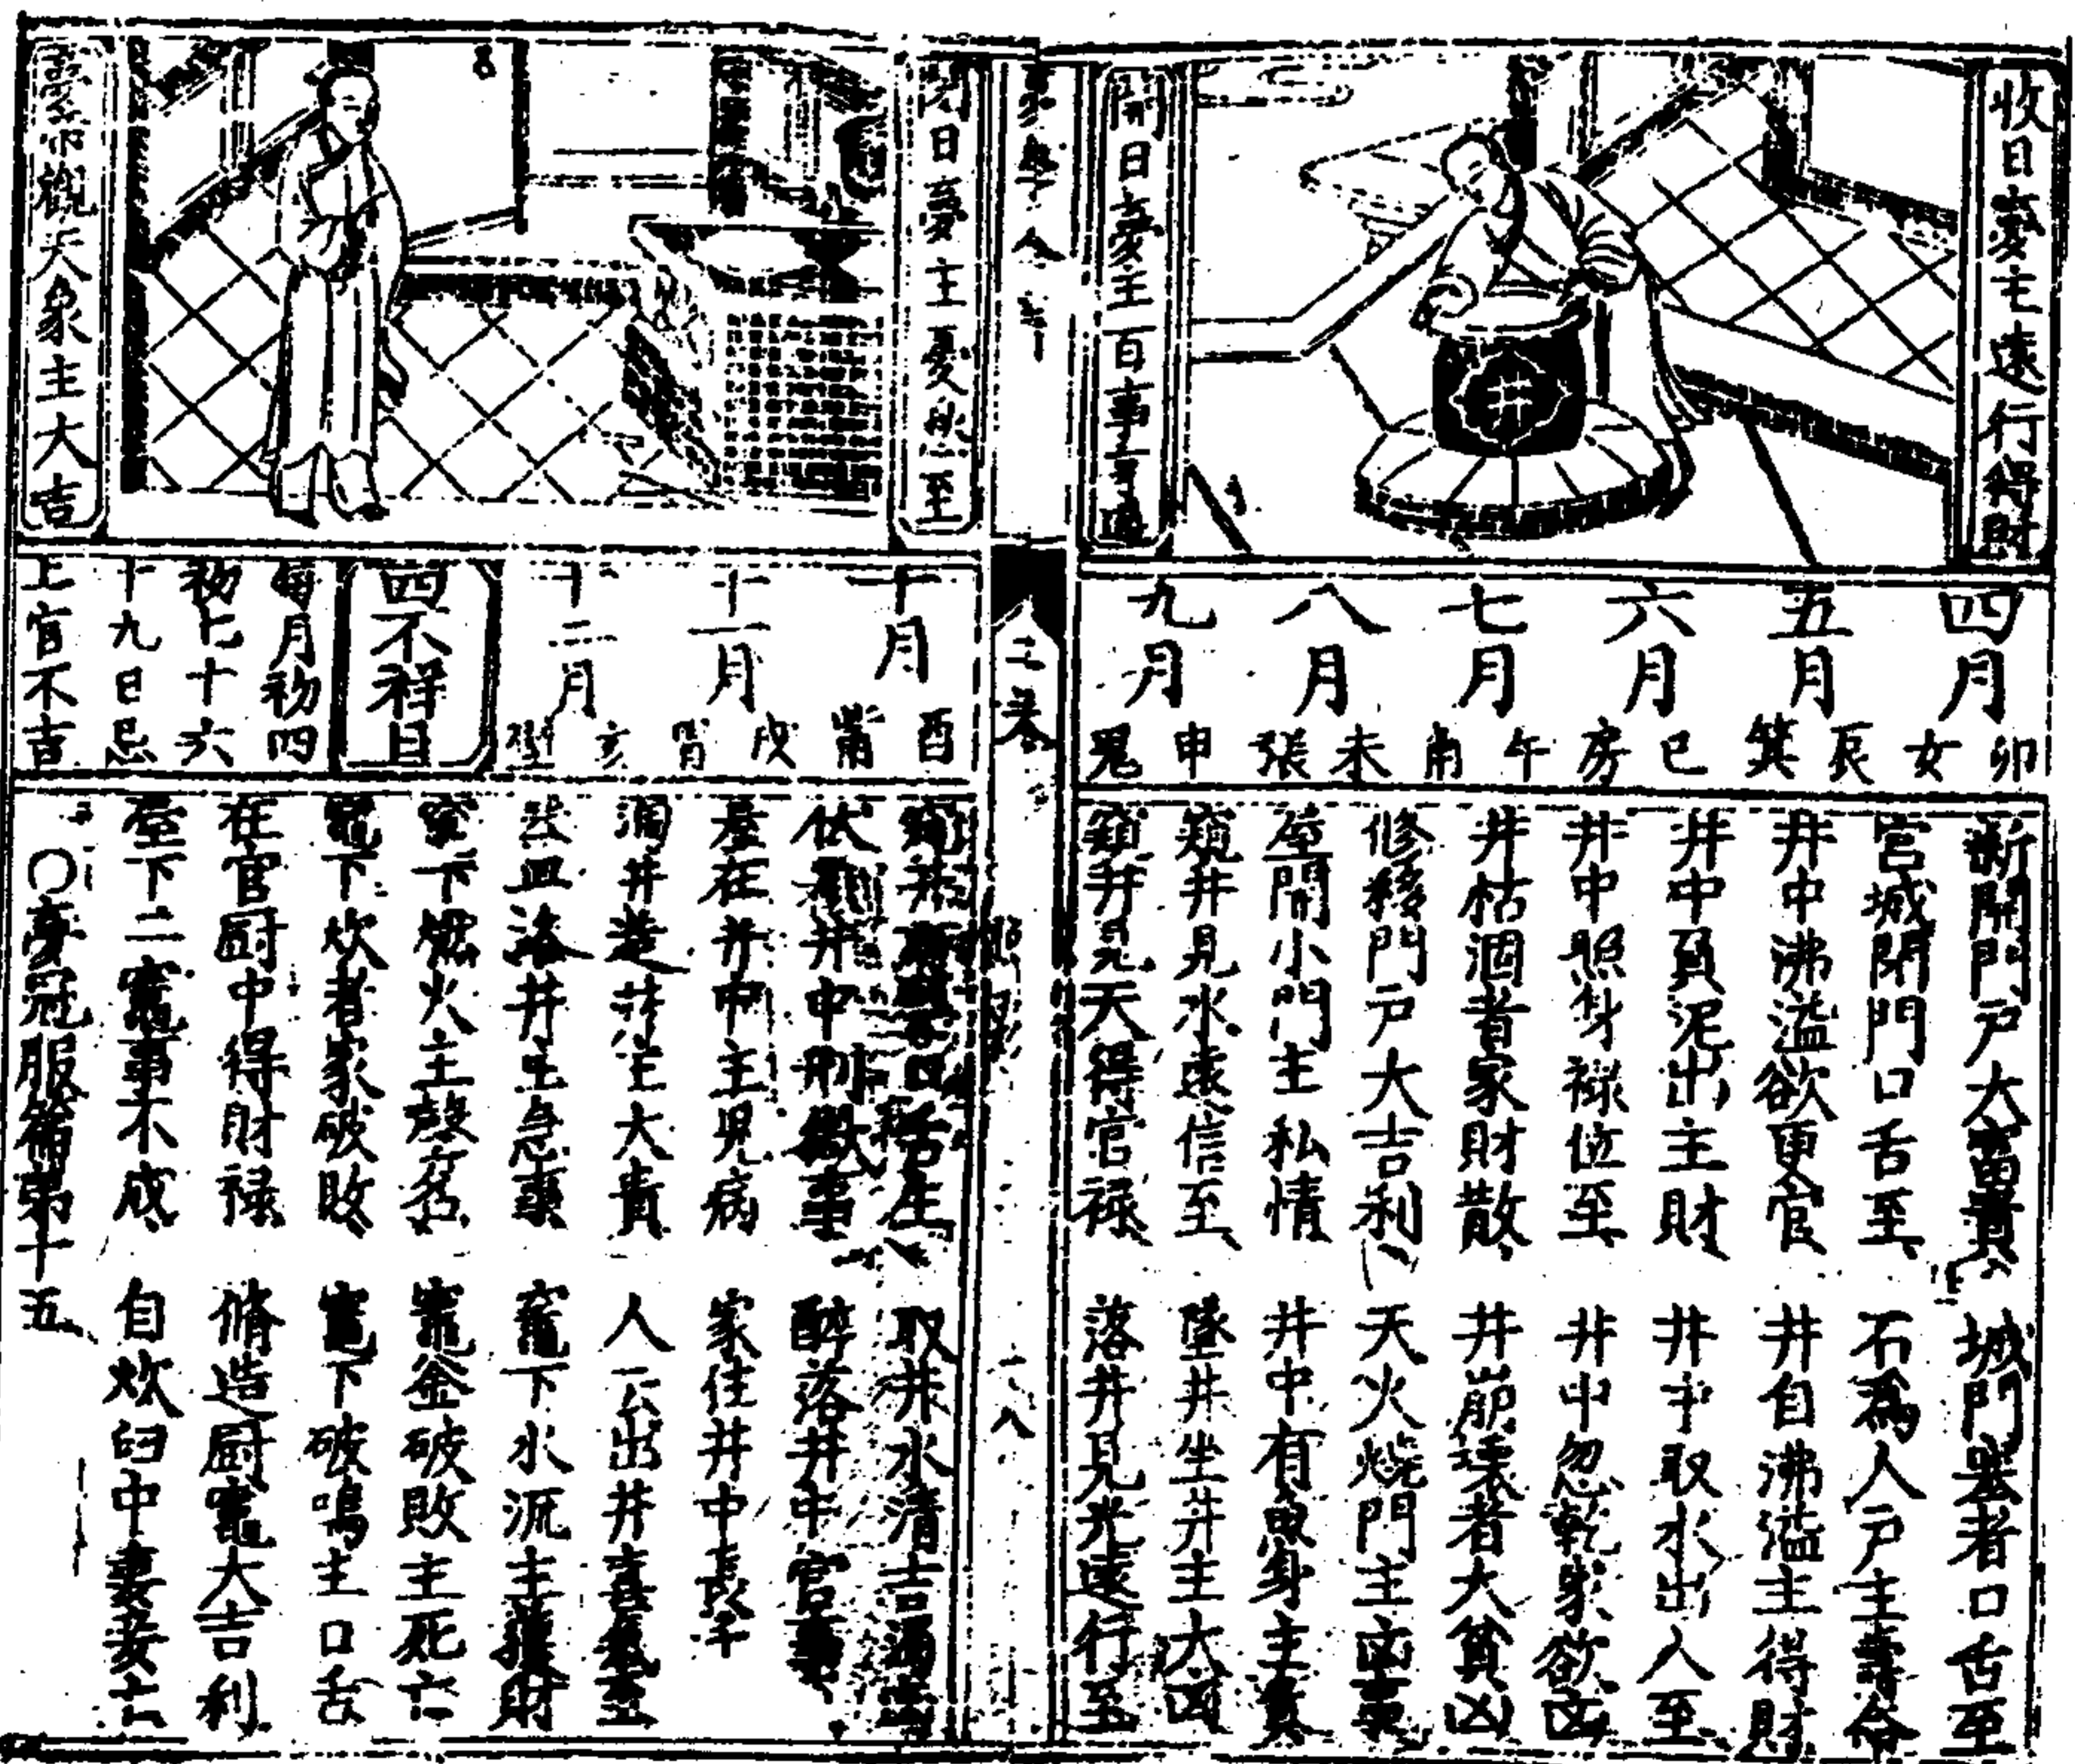 收日夢主遠行得財
開日夢主百事
四月 卯女
五月 辰箕
六月 巳房
七月 午角
八月 未張
九月 申鬼
新開門戶大富貴 城門塞者口舌至
宮城閉門口舌至 石為人戶主壽命
井中沸溢欲更官 井自沸溢主得財
井中負泥出主財 井中取水出入至
井中照身祿位至 井中忽乾家欲凶
井枯涸者家財散 井崩壞者大貧凶
修移門戶大吉利 天火燒門主凶事
屋開小門主私情 井中有魚身主貴
窺井見水遠信至 墜井坐井主大凶
窺井見天得官祿 落井見光遠行至
日夢主憂愁至
觀天象主大吉
十月 酉觜
十一月 戌胃
十二月 亥
四不祥日
每月初四
初七十六
十九日忌
上官不吉
取井水清吉濁凶
井中刑獄事 醉落井中官事
在井中主兒病 家住井中長子
淘井造井主大貴 人云出井喜氣至
器皿落井主急事 竈下水流主獲財
竈下燃火主聲名 竈釜破敗主死亡
竈下炊者家破敗 竈下破鳴主口舌
在官厨中得財祿 修造厨竈大吉利
屋下二竈事不成 自炊臼中妻妾亡
〇夢冠服篇第十五